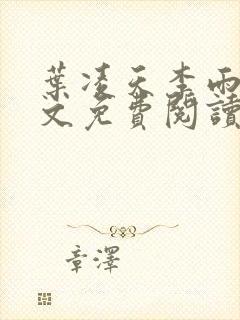 葉凌天李雨
文免費閱讀
章澤